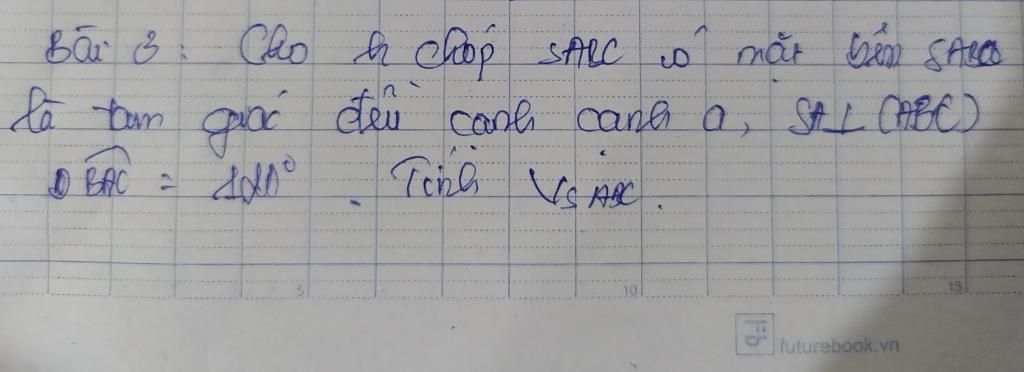 Bài 3: Cho h chóp SABC có mặt bên
là tam giác đều cạnh cạnh a, SA⊥(ABC)
BAC = 120° . Tính V SABC.
5 10 15
futurebook.vn